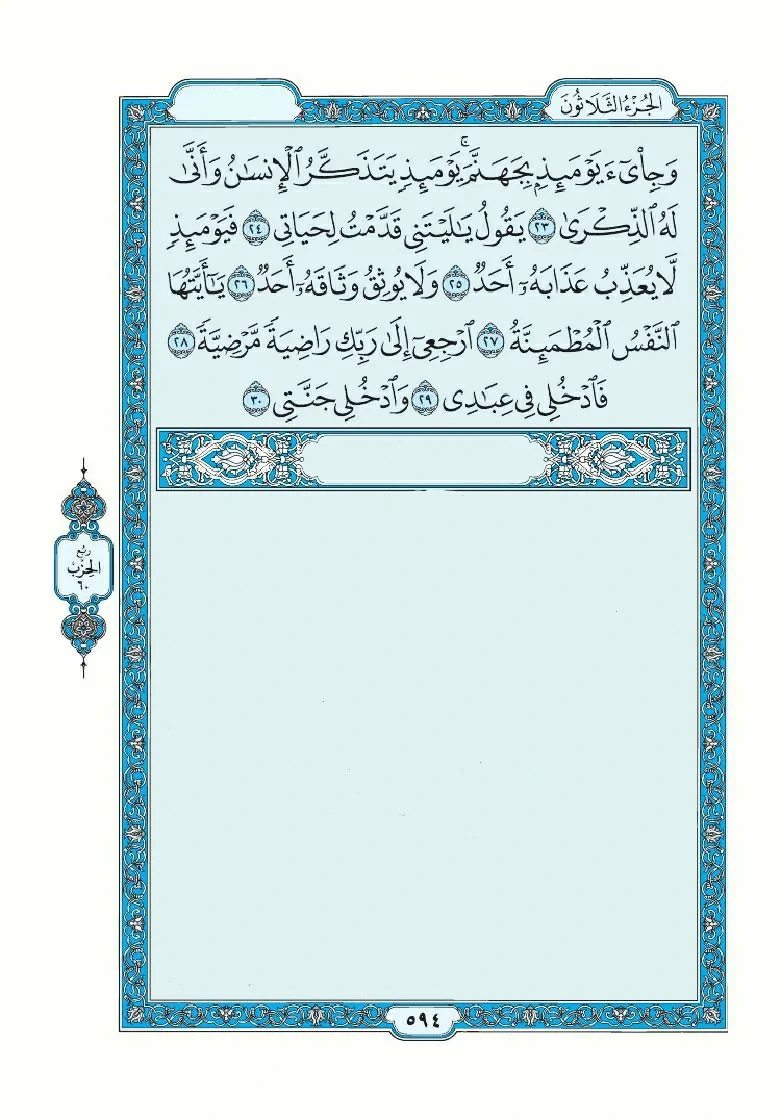 الجُزْءُ الثَّلَاثُونَ
وَجِاْيٓءَ يَوْمَئِذِۭ بِجَهَنَّمَۚ يَوْمَئِذٖ يَتَذَكَّرُ ٱلْإِنسَٰنُ وَأَنَّىٰ
لَهُ ٱلذِّكْرَىٰ ٢٣ يَقُولُ يَٰلَيْتَنِي قَدَّمْتُ لِحَيَاتِي ٢٤ فَيَوْمَئِذٖ
لَّا يُعَذِّبُ عَذَابَهُۥٓ أَحَدٞ ٢٥ وَلَا يُوثِقُ وَثَاقَهُۥٓ أَحَدٞ ٢٦ يَٰٓأَيَّتُهَا
ٱلنَّفْسُ ٱلْمُطْمَئِنَّةُ ٢٧ ٱرْجِعِيٓ إِلَىٰ رَبِّكِ رَاضِيَةٗ مَّرْضِيَّةٗ ٢٨
فَٱدْخُلِي فِي عِبَٰدِي ٢٩ وَٱدْخُلِي جَنَّتِي ٣٠
رُبْع
الحِزْبُ
٦٠
٥٩٤